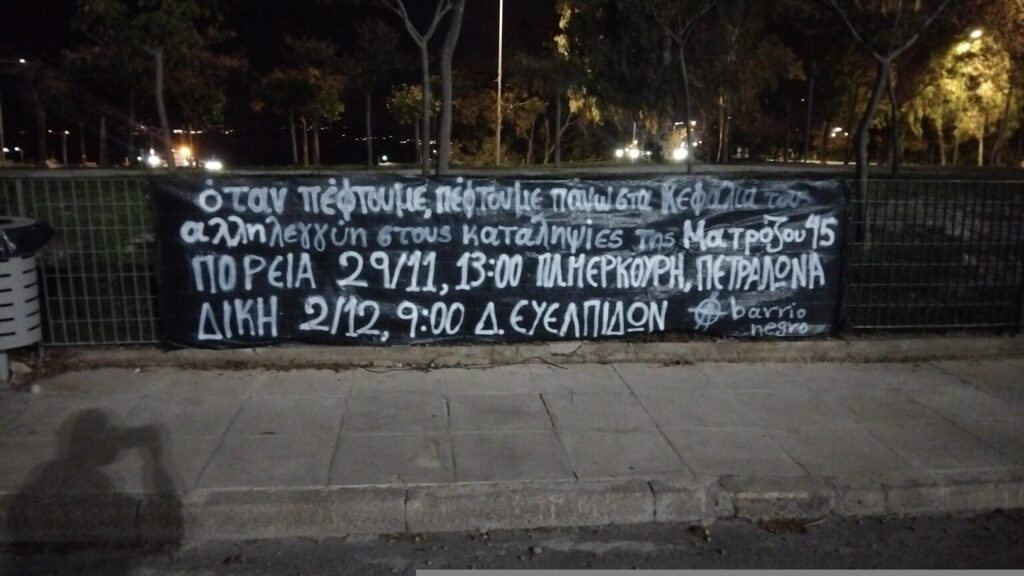 όταν πέφτουμε, πέφτουμε πάνω στα κεφάλια τους
αλληλεγγύη στους καταληψίες της Ματρόζου 45
ΠΟΡΕΙΑ 29/11, 13:00 ΠΛ.ΜΕΡΚΟΥΡΗ, ΠΕΤΡΑΛΩΝΑ
ΔΙΚΗ 2/12, 9:00 Δ. ΕΥΕΛΠΙΔΩΝ
barrio
negro